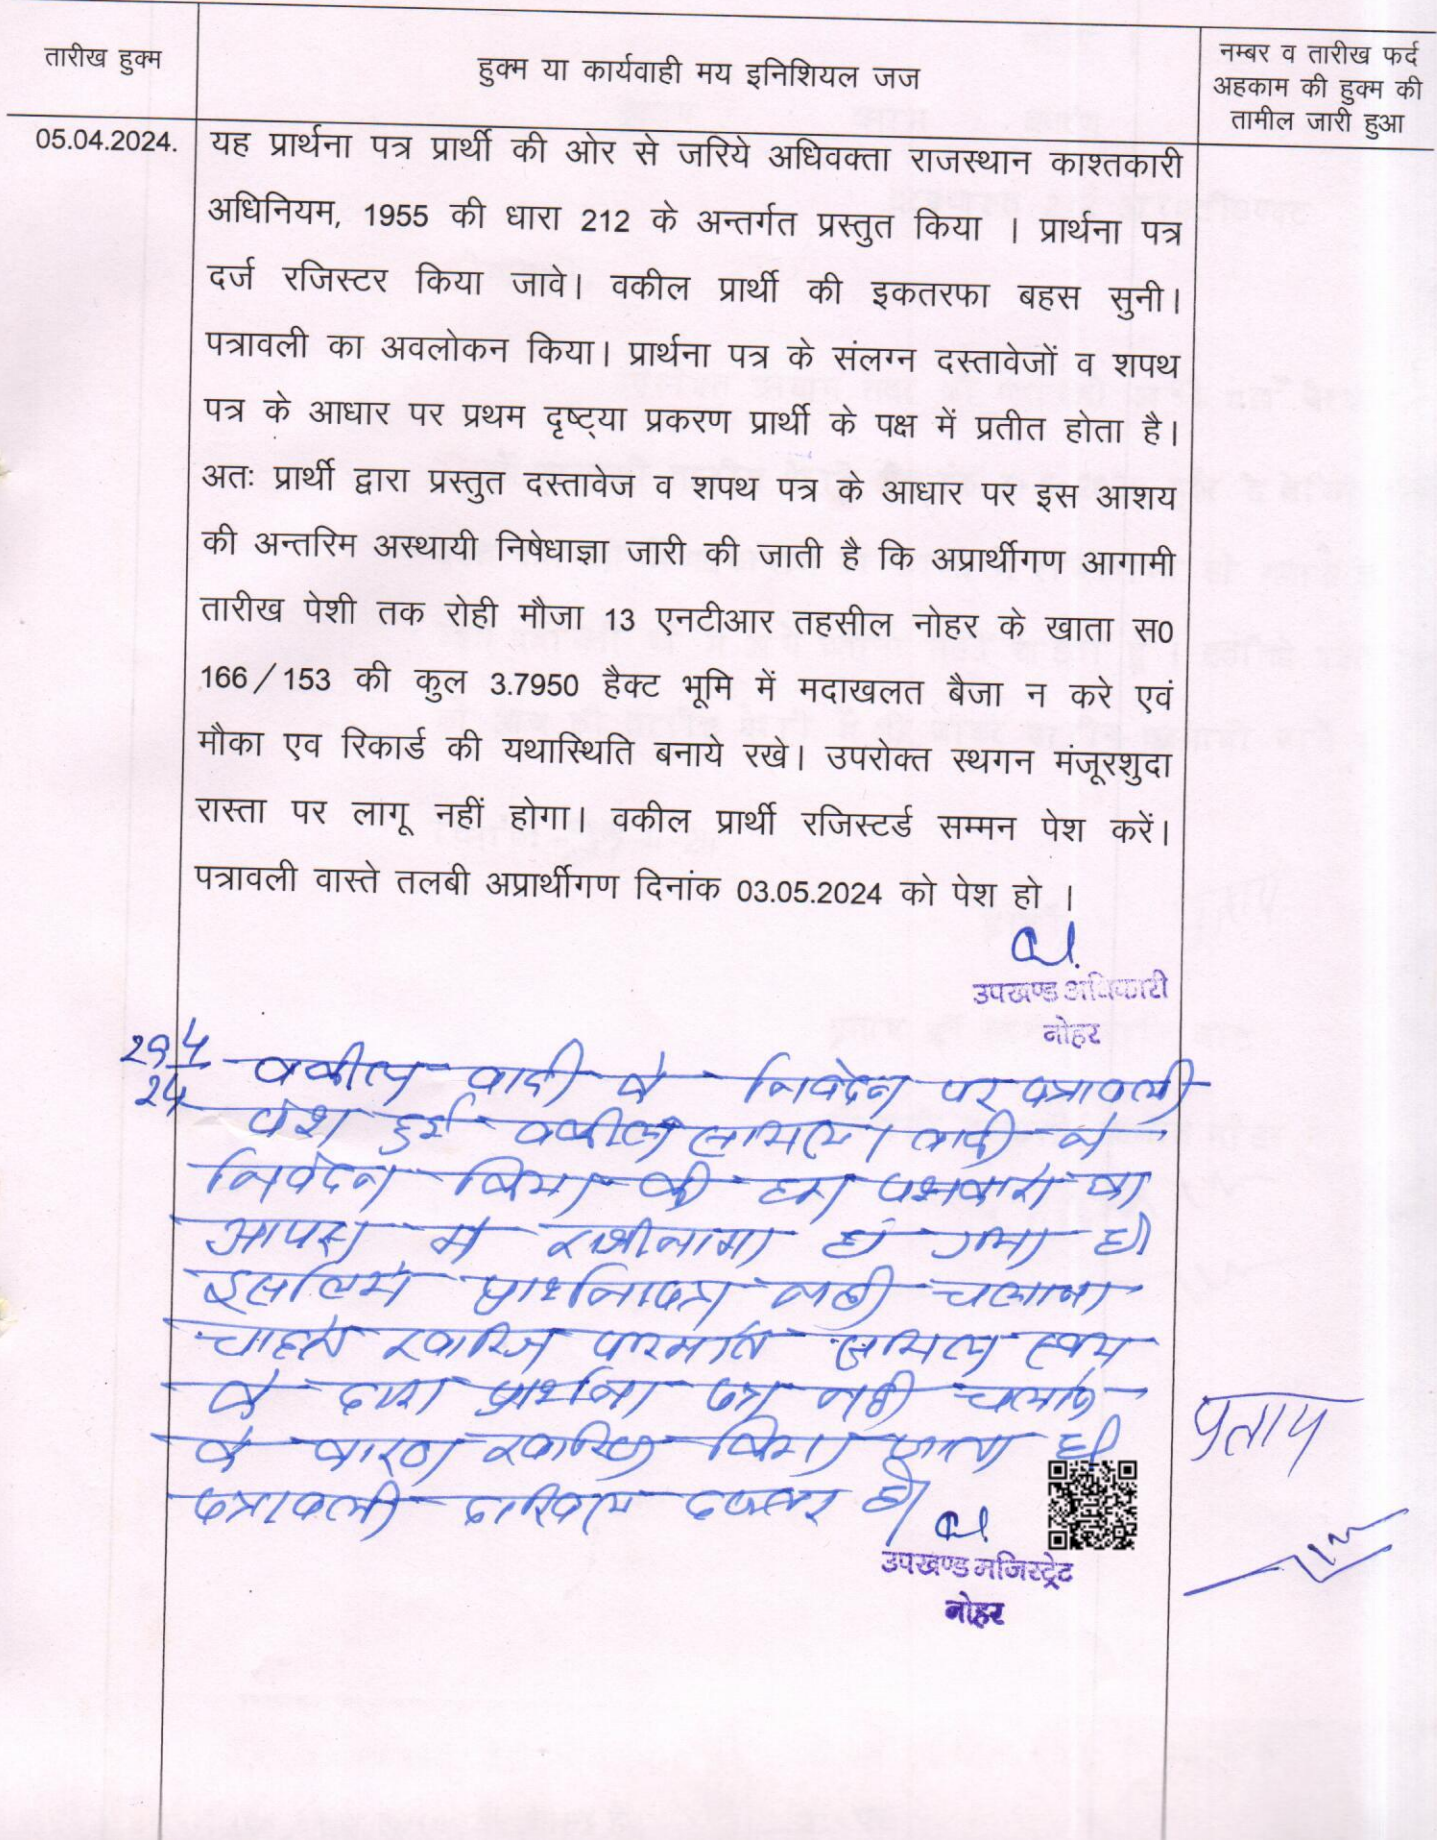 तारीख हुक्म
हुक्म या कार्यवाही मय इनिशियल जज
नम्बर व तारीख फर्द
अहकाम की हुक्म की
तामील जारी हुआ
05.04.2024.
यह प्रार्थना पत्र प्रार्थी की ओर से जरिये अधिवक्ता राजस्थान काश्तकारी
अधिनियम, 1955 की धारा 212 के अन्तर्गत प्रस्तुत किया । प्रार्थना पत्र
दर्ज रजिस्टर किया जावे। वकील प्रार्थी की इकतरफा बहस सुनी।
पत्रावली का अवलोकन किया। प्रार्थना पत्र के संलग्न दस्तावेजों व शपथ
पत्र के आधार पर प्रथम दृष्ट्या प्रकरण प्रार्थी के पक्ष में प्रतीत होता है।
अतः प्रार्थी द्वारा प्रस्तुत दस्तावेज व शपथ पत्र के आधार पर इस आशय
की अन्तरिम अस्थायी निषेधाज्ञा जारी की जाती है कि अप्रार्थीगण आगामी
तारीख पेशी तक रोही मौजा 13 एनटीआर तहसील नोहर के खाता स0
166/153 की कुल 3.7950 हैक्ट भूमि में मदाखलत बैजा न करे एवं
मौका एव रिकार्ड की यथास्थिति बनाये रखे। उपरोक्त स्थगन मंजूरशुदा
रास्ता पर लागू नहीं होगा। वकील प्रार्थी रजिस्टर्ड सम्मन पेश करें।
पत्रावली वास्ते तलबी अप्रार्थीगण दिनांक 03.05.2024 को पेश हो ।
उपखण्ड अधिकारी
नोहर
29/4
24
वकील वादी के निवेदन पर पत्रावली
पेश हुई वकील सायल। वादी ने
निवेदन किया की हम पक्षकारो का
आपस मे राजीनामा हो गया है।
इसलिये प्रार्थनापत्र नही चलाना
चाहते खारिज फरमावे सायल स्वय
के द्वारा प्रार्थना पत्र नही चलाने
के कारण खारिज किया जाता है।
पत्रावली दाखिल दफ्तर हो।
प्रताप
उपखण्ड मजिस्ट्रेट
नोहर